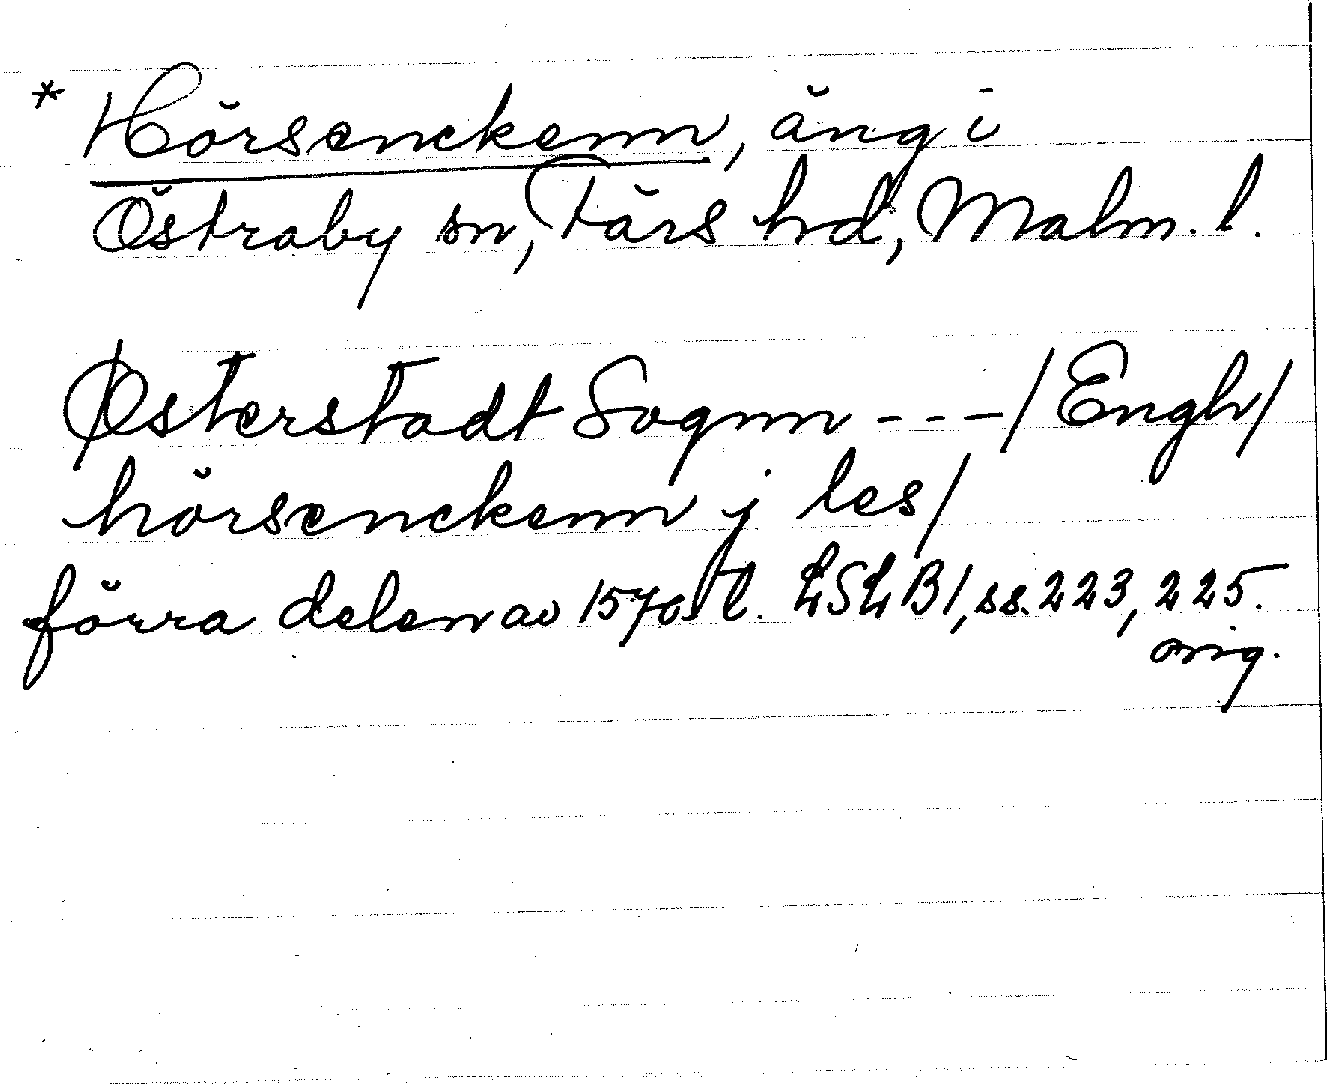 * Hörsenckenn, äng i
Östraby sn, Färs hd, Malm. l.
Østerstadt Sognn ---/Engh/
hörsenckenn j les/
förra delen av 1570 t. LSLB1, ss. 223, 225.
orig.